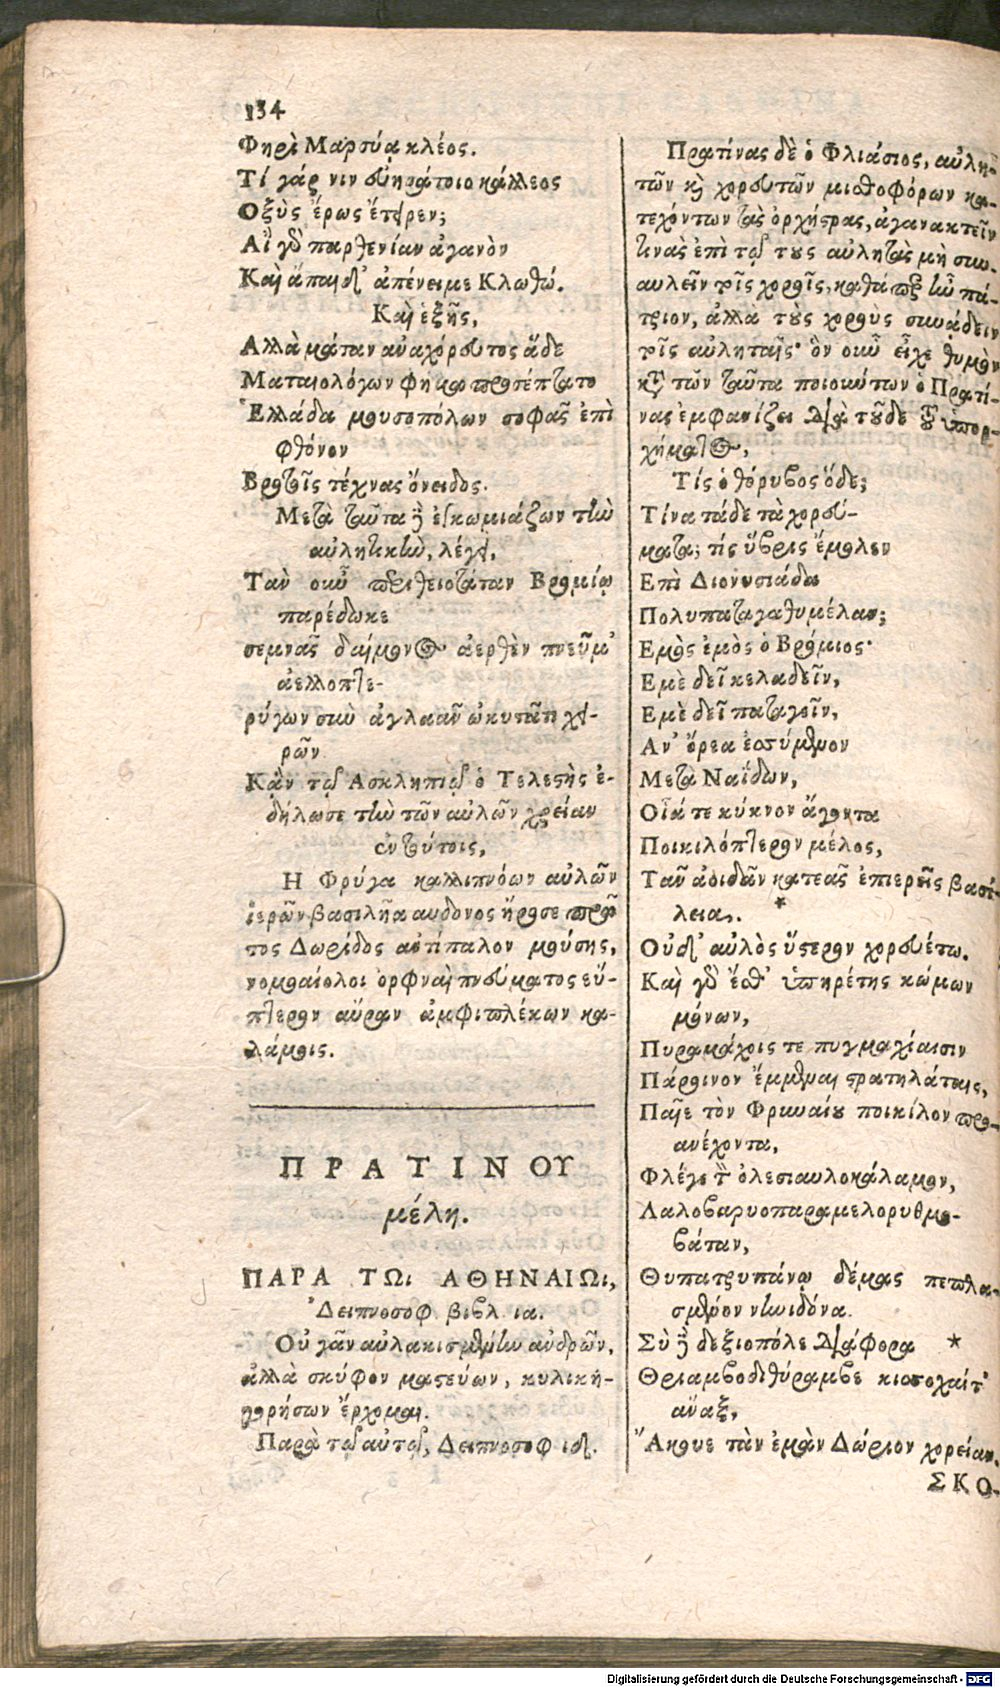 134
Φηρὶ Μαρσύᾳ κλέος.
Τί γάρ νιν εὐηράτοιο κάλλεος
Οξὺς ἔρως ἔτειρεν;
Αἳ γὸ παρθενίαν ἀγανὸν
Καὶ ἄπαιδ' ἀπένειμε Κλωθώ.
Καὶ ἑξῆς,
Αλλὰ μάταν ἀναχόρευτος ἅδε
Ματαιολόγων φήμα προσέπτατο
Ἑλλάδα μουσοπόλων σοφᾶς ἐπὶ
φθόνον
Βροτοῖς τέχνας ὄνειδος.
Μετὰ ταῦτα δὲ ἐγκωμιάζων τὴν
αὐλητικὴν, λέγει,
Τὰν οὖν περιθειοτάταν Βρομίῳ
παρέδωκε
σεμνᾶς δαίμονος ἀερθὲν πνεῦμ'
ἀελλοπτε-
ρύγων σὺν ἀγλαᾶν ὠκυτᾶτι χει-
ρῶν.
Κᾂν τῷ Ασκληπιῷ ὁ Τελέστης ἐ-
δήλωσε τὴν τῶν αὐλῶν χρείαν
ἐν τούτοις,
Η Φρύγα καλλιπνόων αὐλῶν
ἱερῶν βασιλῆα αυδονος ἤρησε πρῶ
τος Δωρίδος ἀντίπαλον μούσης,
νομοαίολοι ὀρφναὶ πνεύματος εὔ-
πτερον αὔραν ἀμφιπλέκων κα-
λάμοις.
ΠΡΑΤΙΝΟΥ
μέλη.
ΠΑΡΑ ΤΩι ΑΘΗΝΑΙΩι,
Δειπνοσοφ. βιβλ. ια.
Οὐ γᾶν αὐλακισμένην ἀνδρῶν,
ἀλλὰ σκύφον ματεύων, κυλικη-
γορήσων ἔρχομαι.
Παρὰ τῷ αὐτῷ, Δειπνοσοφ ιδ.
Πρατίνας δὲ ὁ Φλιάσιος, αὐλη-
τῶν καὶ χορευτῶν μισθοφόρων κα-
τεχόντων τὰς ὀρχήστρας, ἀγανακτεῖν
τινὰς ἐπὶ τῷ τοὺς αὐλητὰς μὴ συν-
αυλεῖν τοῖς χοροῖς, καθάπερ ἦν πά-
τριον, ἀλλὰ τοὺς χοροὺς συνάδειν
τοῖς αὐληταῖς· ὃν οὖν εἶχε θυμὸν
κατὰ τῶν ταῦτα ποιούντων ὁ Πρατί-
νας ἐμφανίζει διὰ τοῦδε τοῦ ὑπορ-
χήματος,
Τίς ὁ θόρυβος ὅδε;
Τίνα τάδε τὰ χορεύ-
ματα; τίς ὕβρις ἔμολεν
Επὶ Διονυσιάδα
Πολυπαταγαθυμέλαν;
Εμὸς ἐμὸς ὁ Βρόμιος·
Εμὲ δεῖ κελαδεῖν,
Εμὲ δεῖ παταγεῖν,
Αν' ὄρεα ἐσσύμενον
Μετὰ Ναΐδων,
Οἷά τε κύκνον ἄγοντα
Ποικιλόπτερον μέλος,
Τᾶν ἀοιδᾶν κατεᾶς ἐπιερεῖς βασί-
λεια. *
Οὐδ' αὐλὸς ὕστερον χορευέτω.
Καὶ γὸ ἔσθ' ὑπηρέτης κώμων
μόνων,
Πυραμάχοις τε πυγμαχίαισιν
Πάροινον ἔμμεναι στρατηλάταις,
Παῖε τὸν Φρυναίου ποικίλον προ-
ανέχοντα,
Φλέγε τὸν ὀλεσιαυλοκάλαμον,
Λαλοβαρυοπαραμελορυθμο-
βάταν,
Θυπατρυπάνῳ δέμας πεπλα-
σμένον νωιδόνα.
Σὺ δὲ δεξιοπόλε διάφορα *
Θριαμβοδιθύραμβε κισσοχαίτ'
ἄναξ,
Ἄκουε τὰν ἐμὰν Δώριον χορείαν.
ΣΚΟ-
Digitalisierung gefördert durch die Deutsche Forschungsgemeinschaft - DFG